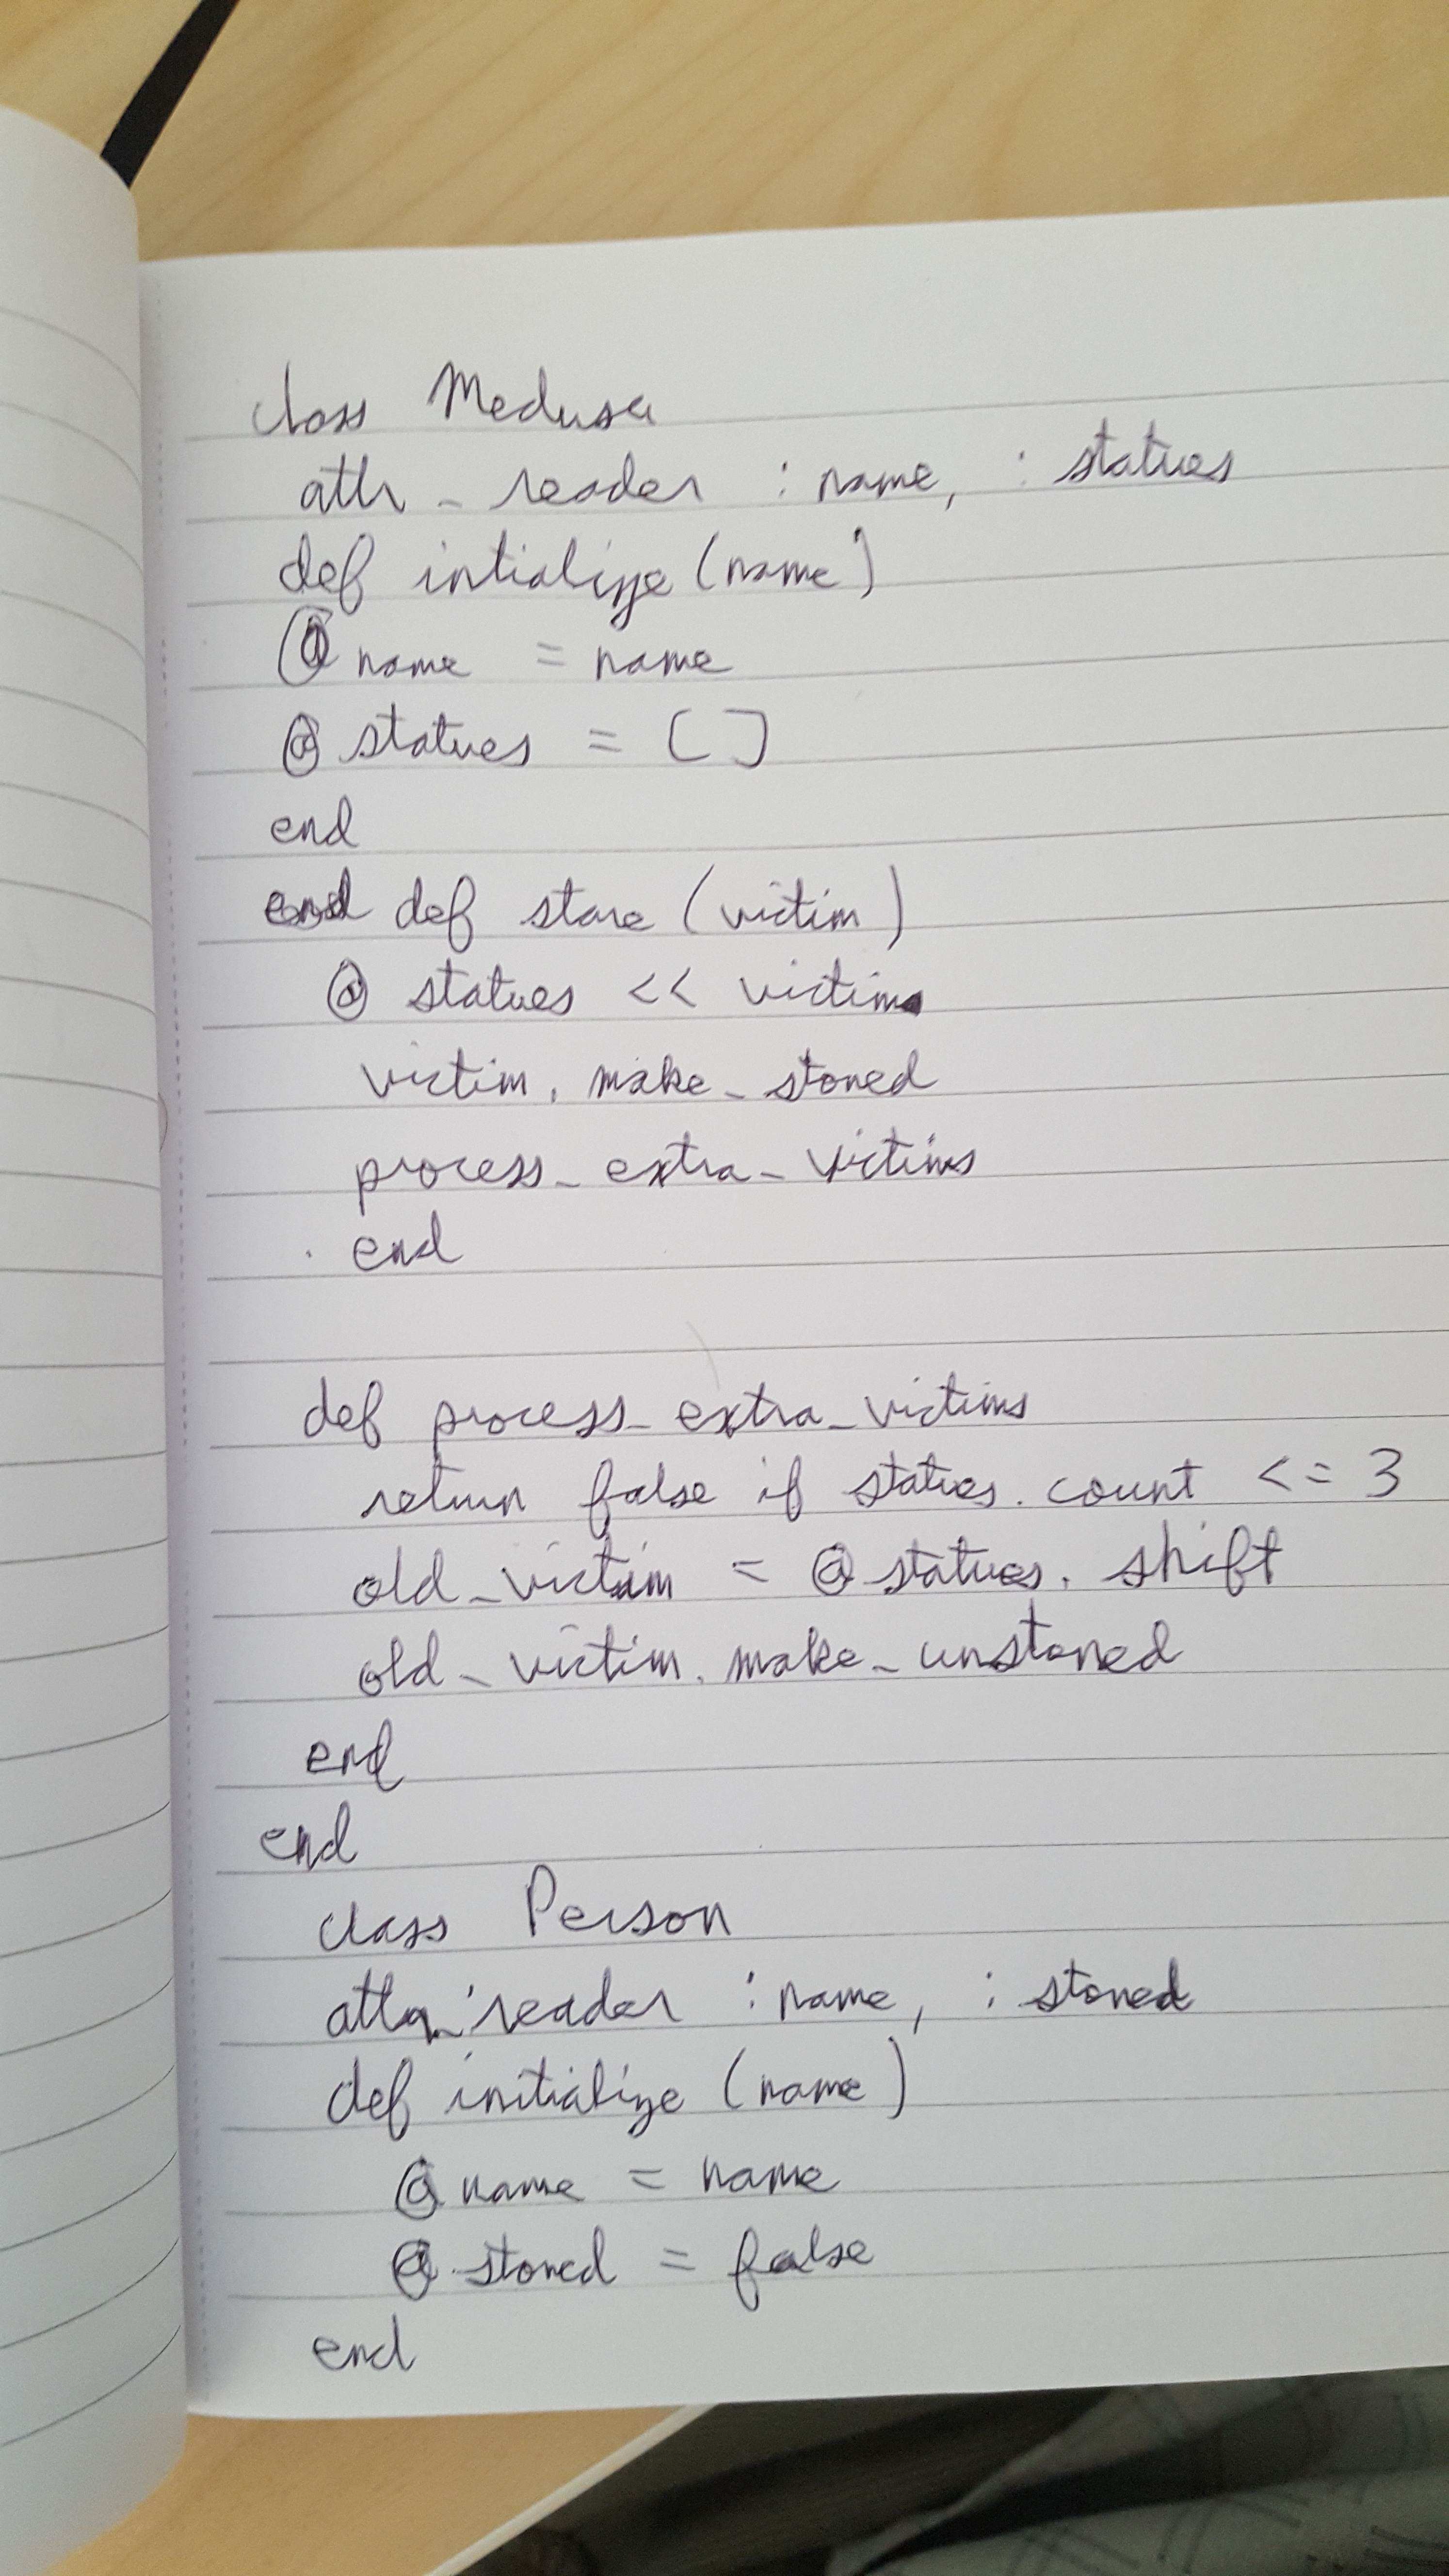 class Medusa
attr_reader :name, :statues
def intialize (name)
@name = name
@statues = []
end
end def stare (victim)
@statues << victim
victim.make_stoned
process_extra_victims
end
def process_extra_victims
return false if statues.count <= 3
old_victim = @statues.shift
old_victim.make_unstoned
end
end
class Person
attr_reader :name, :stoned
def initialize (name)
@name = name
@stoned = false
end